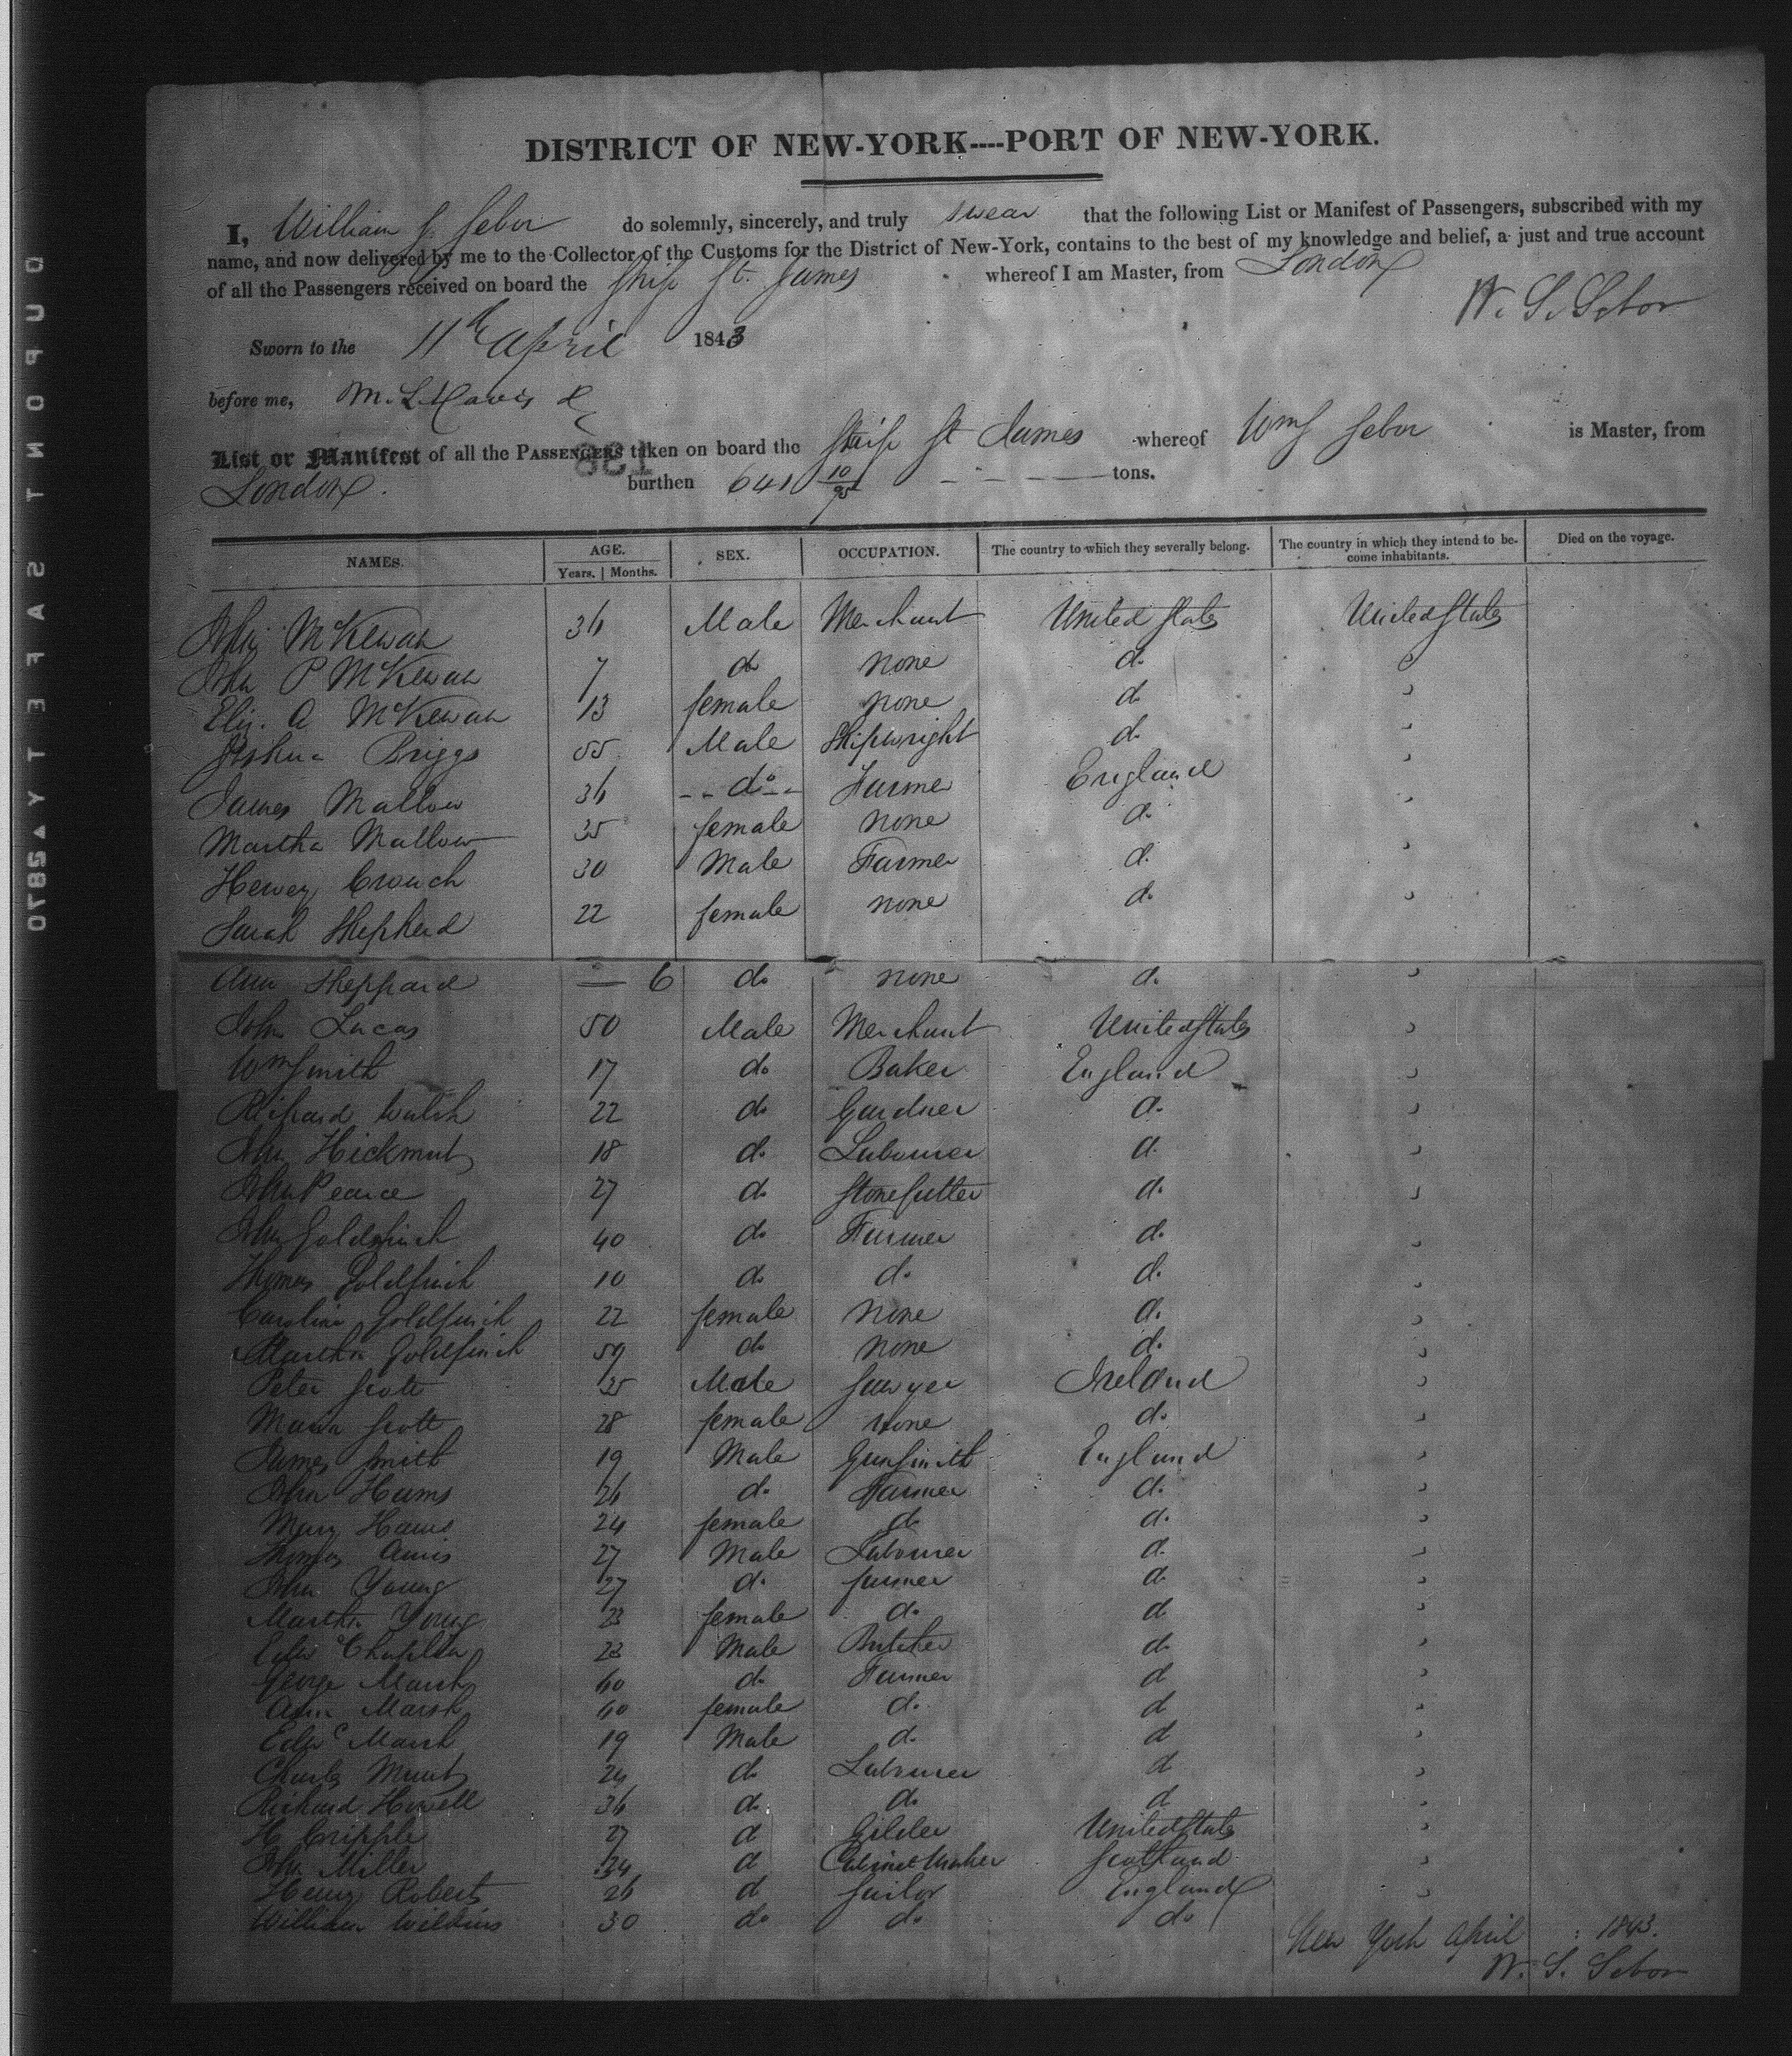 DISTRICT OF NEW-YORK----PORT OF NEW-YORK.
I, William S. Sebor do solemnly, sincerely, and truly swear that the following List or Manifest of Passengers, subscribed with my
name, and now delivered by me to the Collector of the Customs for the District of New-York, contains to the best of my knowledge and belief, a just and true account
of all the Passengers received on board the Ship St. James whereof I am Master, from London
W. S. Sebor
Sworn to the 11th April 1843
before me, M. L. Davis
List or Manifest of all the PASSENGERS taken on board the Ship St James whereof Wm S Sebor is Master, from
London. burthen 641 10/95 tons.
NAMES. AGE. SEX. OCCUPATION. The country to which they severally belong. The country in which they intend to be- Died on the voyage.
Years. | Months. come inhabitants.
McKewan 36 Male Merchant United States United States
John P McKewan 7 do none do "
Eliz. A McKewan 13 female none do "
Joshua Briggs 55 Male Shipwright do "
James Mallow 36 do Farmer England "
Martha Mallow 35 female none do "
Crouch 30 Male Farmer do "
Sarah Shepherd 22 female none do "
Ann Sheppard — 6 do none do "
John Lucas 50 Male Merchant United States "
Wm Smith 17 do Baker England "
Richard Walsh 22 do Gardner do "
John Hickmut 18 do Labourer do "
John Pearce 27 do Stonecutter do "
John Goldfinch 40 do Farmer do "
Thomas Goldfinch 10 do do do "
Caroline Goldfinch 22 female none do "
Martha Goldfinch 59 do none do "
Peter Scott 35 Male Sawyer Ireland "
Maria Scott 28 female none do "
James Smith 19 Male Gunsmith England "
John Hams 26 do Farmer do "
Mary Hams 24 female do do "
Thomas Amis 27 Male Labourer do "
John Young 27 do farmer do "
Martha Young 23 female do do "
Edwd Chaplin 23 Male Butcher do "
George Marsh 60 do Farmer do "
Ann Marsh 60 female do do "
Edwd Marsh 19 Male do do "
Charles 24 do Labourer do "
Richard Howell 36 do do do "
H Cripple 27 do Gilder United States "
John Miller 24 do Cabinet Maker Scotland "
Henry Roberts 26 do Sailor England "
William Wilkins 30 do do do
New York April 1843.
W. S. Sebor
DUPONT SAFETY 2870